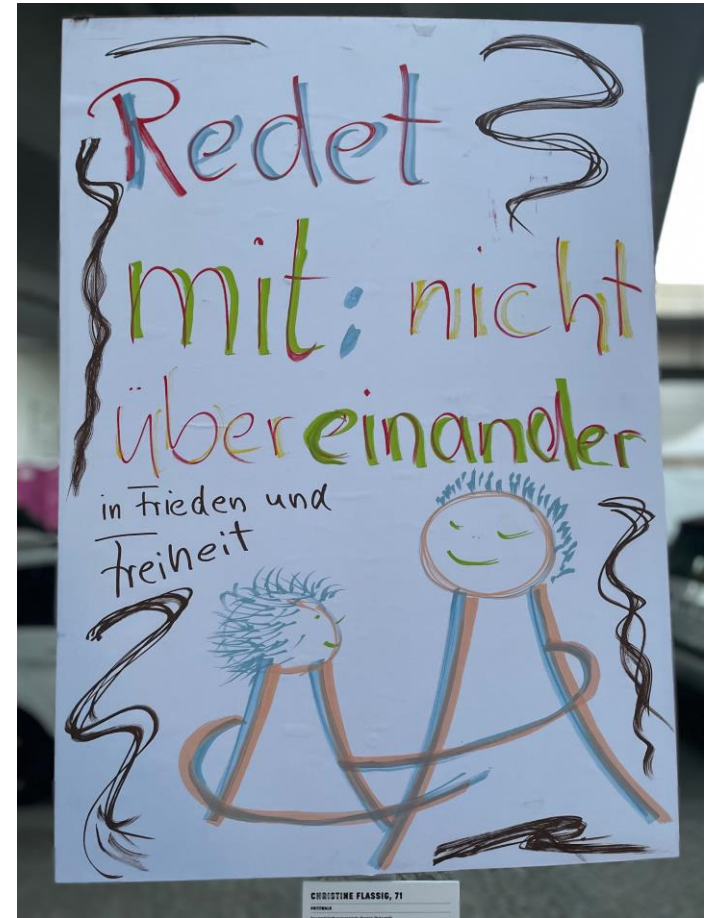 Redet
mit; nicht
übereinander
in Frieden und
Freiheit
CHRISTINE FLASSIG, 71